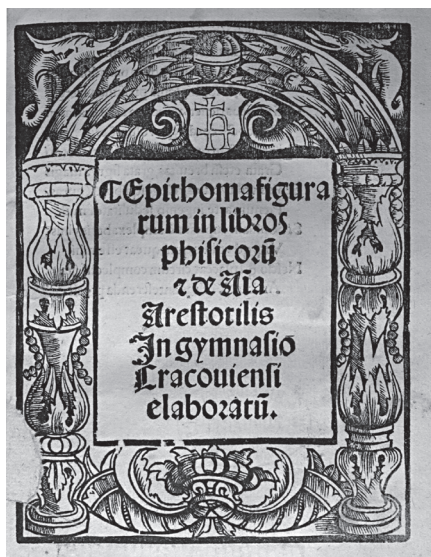 ⁋Epithoma figura
rum in libros
phisicorū
⁊ de Aīa
Arestotilis
In gymnasio
Cracouiensi
elaboratū.